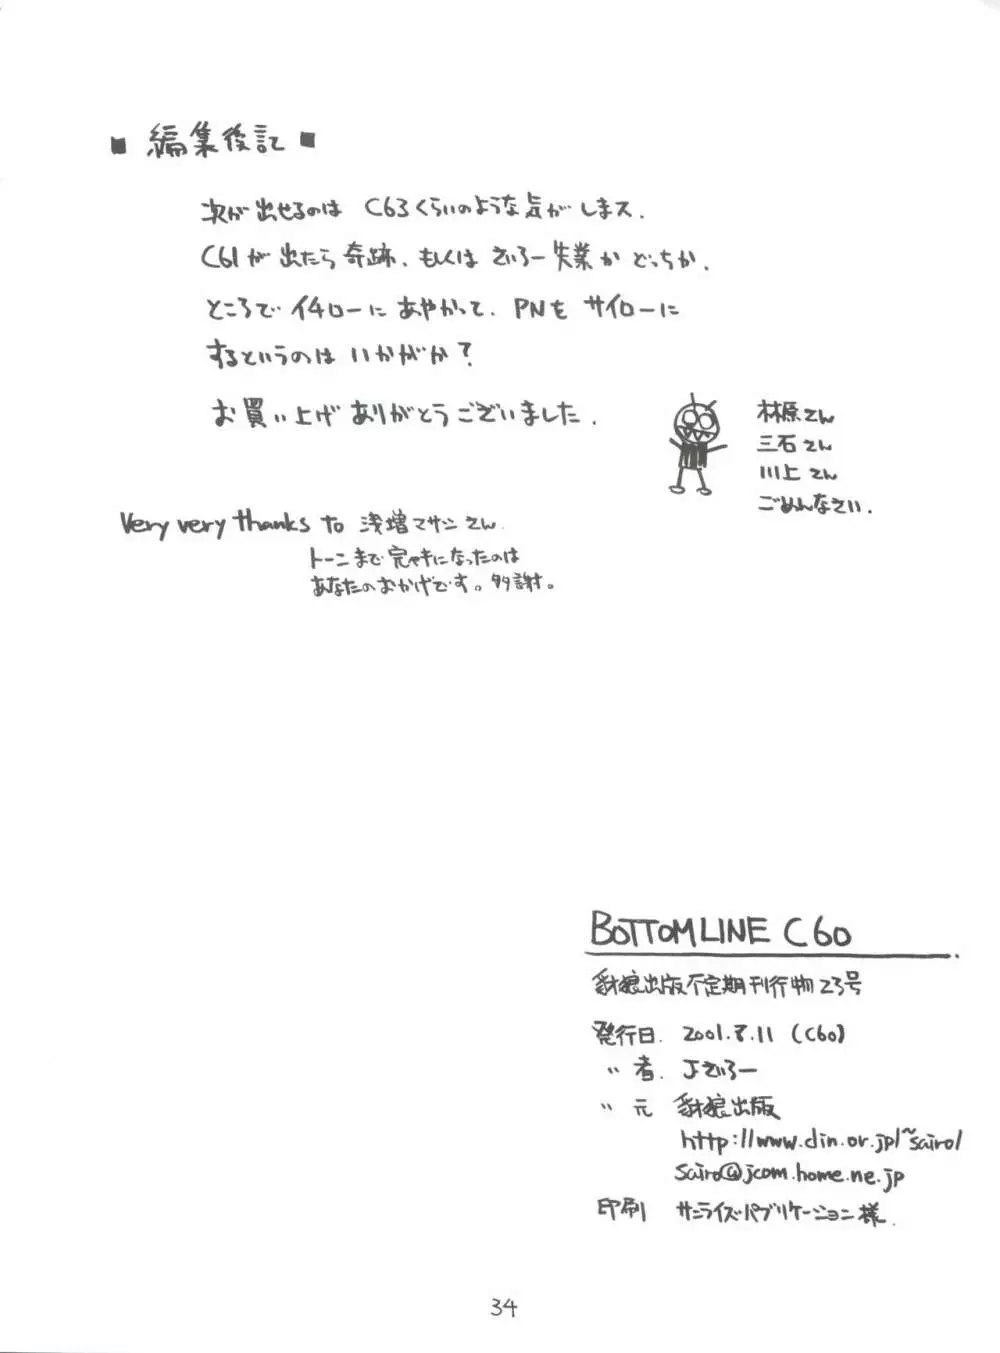 ■ 編集後記 ■
次が出せるのは C63くらいのような気がしまス.
C61が出たら奇跡、もしくは さいろー失業か どっちか.
ところで イチローに あやかって、PNを サイローに
するというのは いかがか?
お買い上げ ありがとうございました.
林原さん
三石さん
川上さん
ごめんなさい.
Very very thanks to 浅増マサシ さん.
トーンまで完ペキになったのは
あなたのおかげです。多謝。
BOTTOMLINE C60
豺狼出版不定期刊行物23号
発行日. 2001.8.11 (C60)
〃 者. Jさいろー
〃 元 豺狼出版
http://www.din.or.jp/~sairo/
sairo@jcom.home.ne.jp
印刷 サンライズ・パブリケーション様.
34